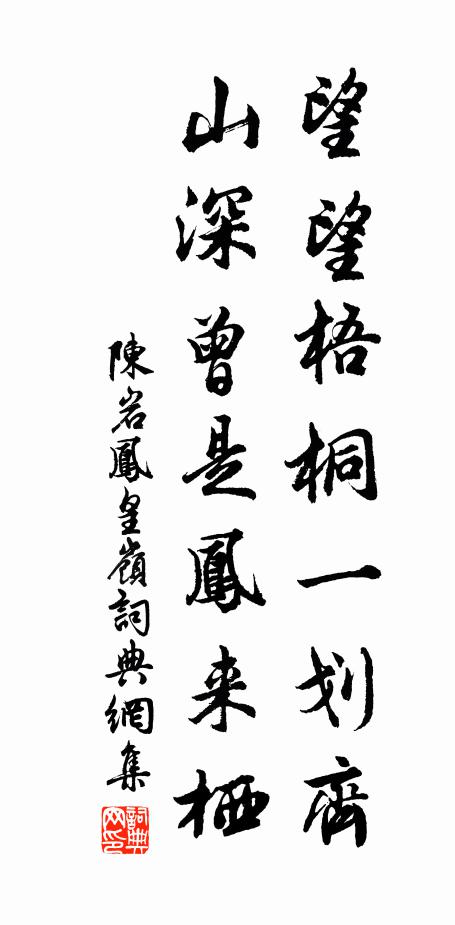 望望梧桐一划齊
山深曾是鳳来栖
陳岩鳳皇嶺詞典網集
詞典网印